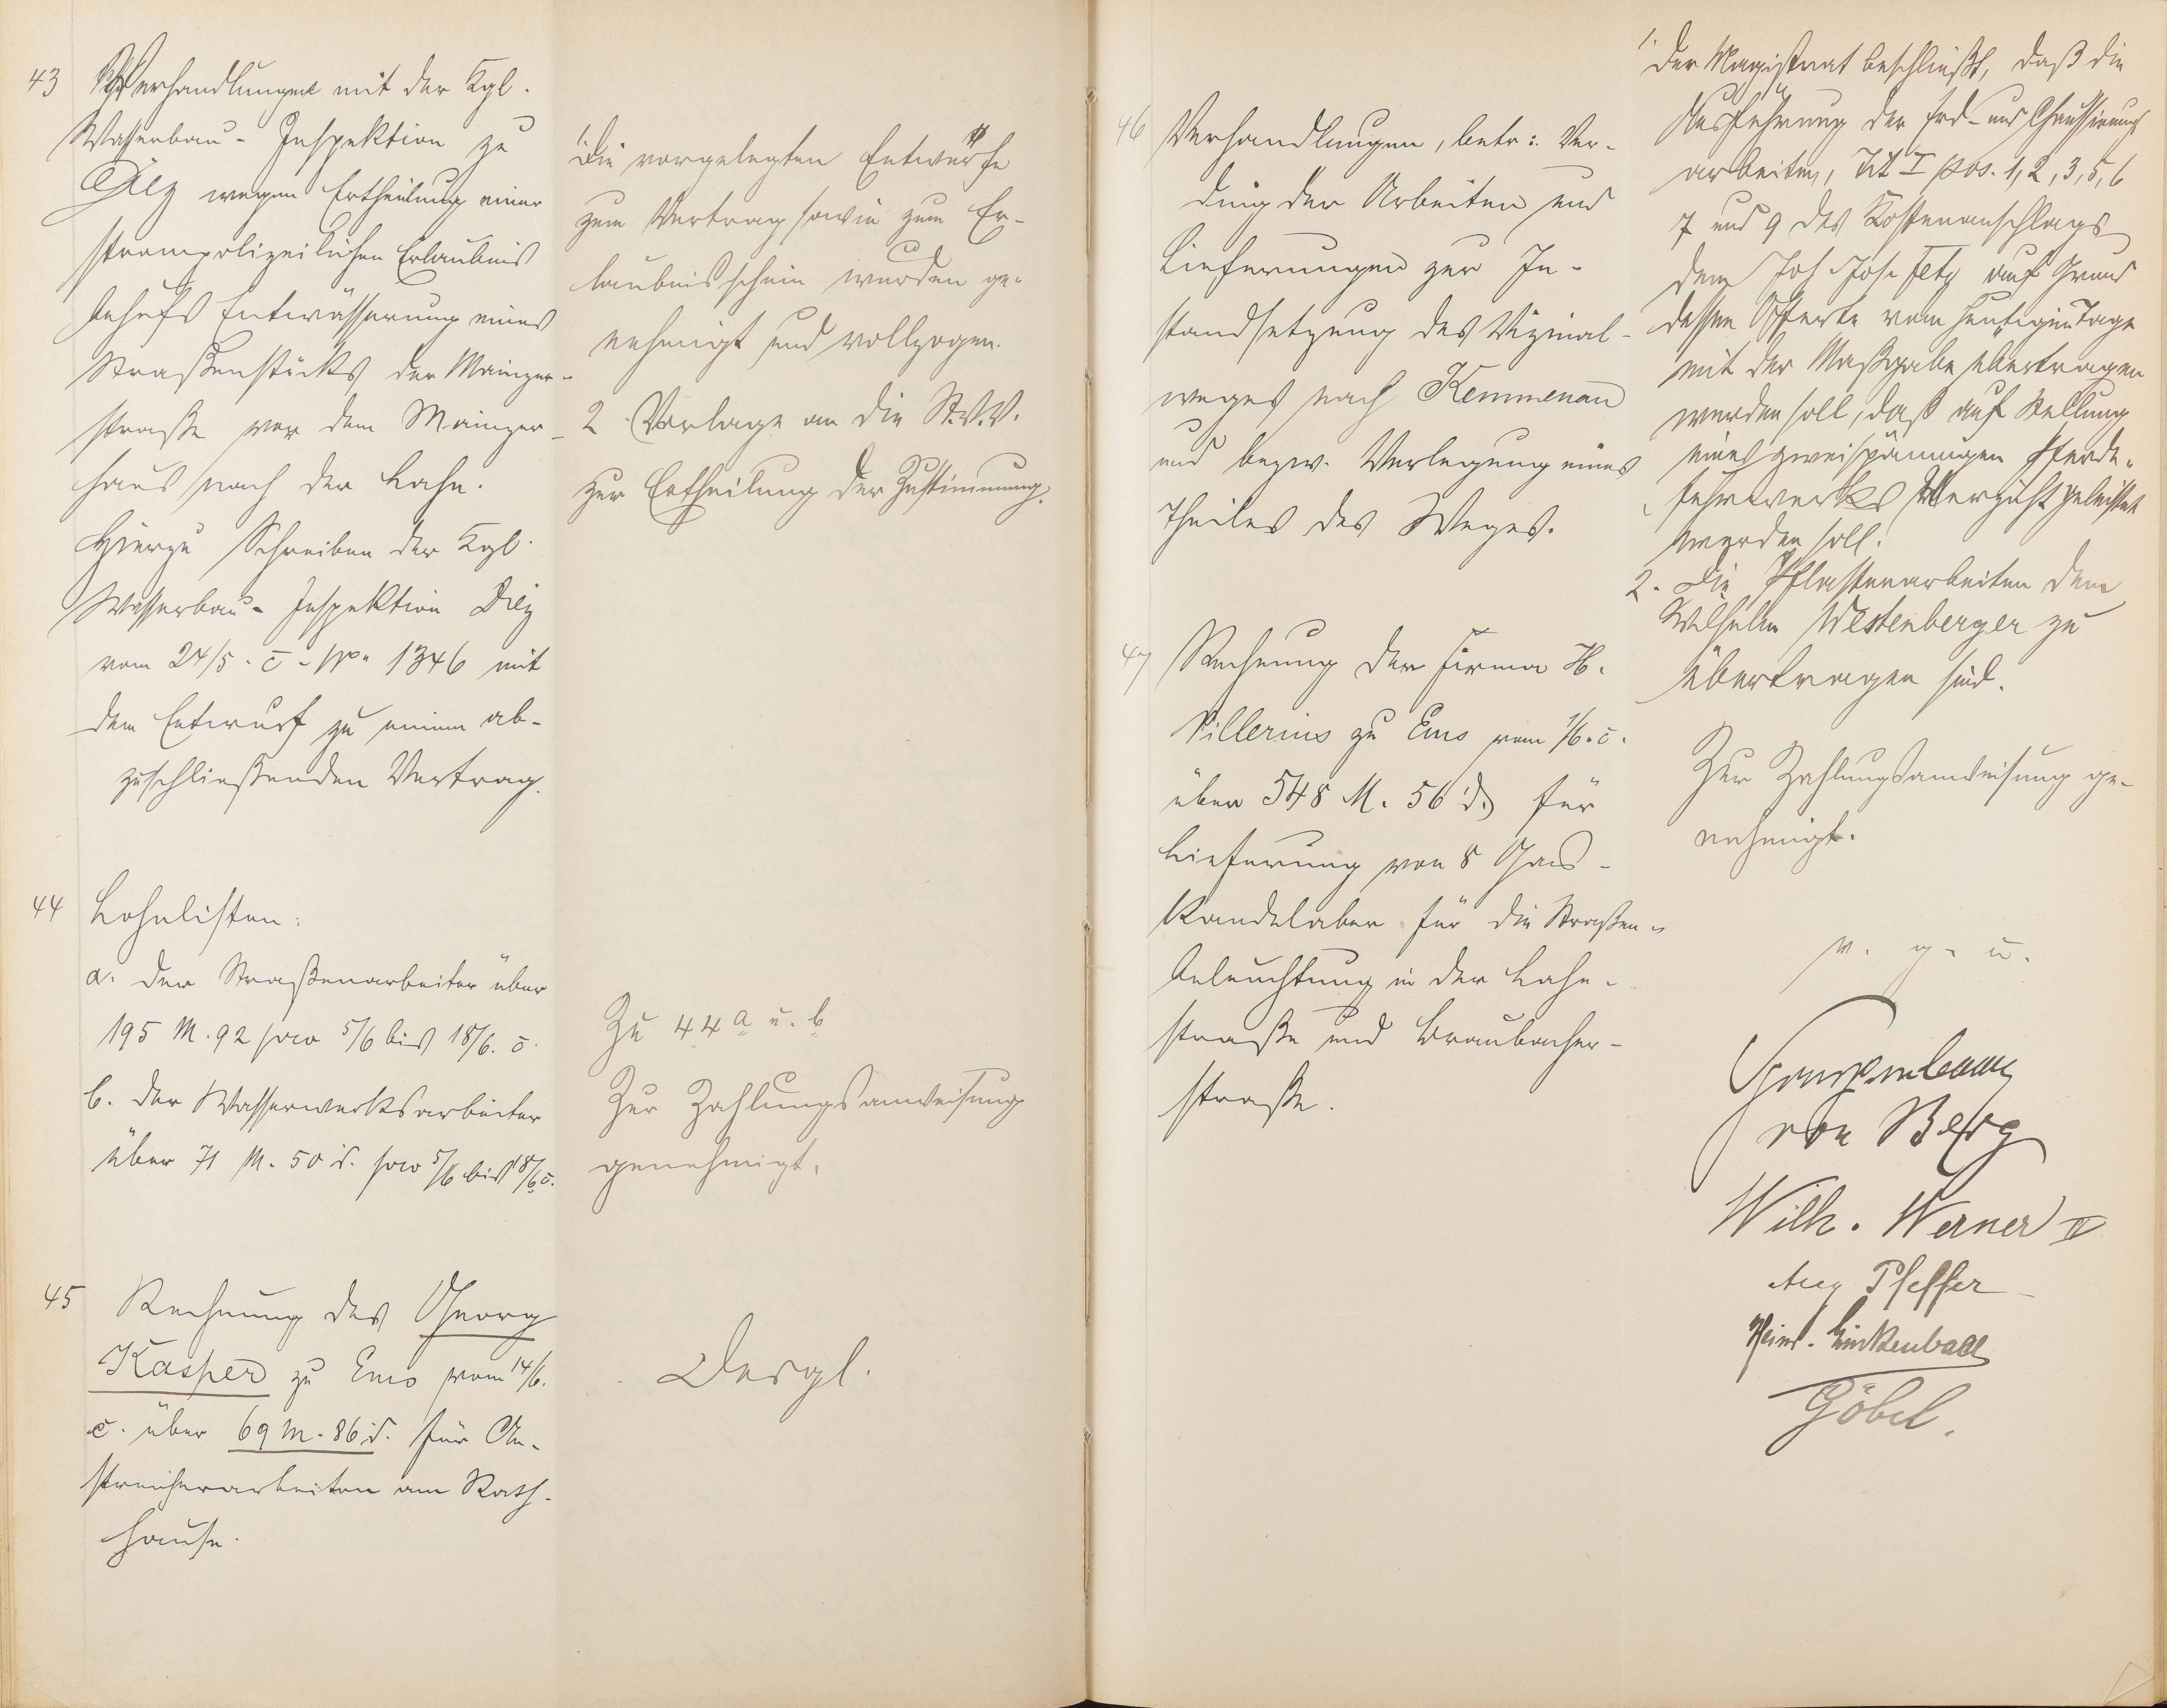 43 Verhandlungen mit der Kgl.
Wasserbau-Inspektion zu
Diez wegen Ertheilung einer
strompolizeilichen Erlaubnis
behufs Entwässerung eines
Straßenstücks der Mainzer-
straße vor dem Mainzer-
haus nach der Lahn.
Hierzu Schreiben der Kgl.
Wasserbau-Inspektion Diez
vom 24/5. c. No 1346 mit
dem Entwurf zu einem ab-
zuschließenden Vertrag.
1. Die vorgelegten Entwürfe
zum Vertrag sowie zum Er-
laubnisschein wurden ge-
nehmigt und vollzogen.
2 Vorlage an die St.V.V.
zur Ertheilung der Zustimmung.
44 Lohnlisten:
a. der Straßenarbeiter über
195 M. 92 pro 5/6 bis 18/6. c.
b. der Wasserwerksarbeiter
über 71 M. 50 d. pro 5/6 bis 18/6 c.
Zu 44 a u. b
Zur Zahlungsanweisung
genehmigt.
45 Rechnung des Georg
Kasper zu Ems vom 14/6.
c. über 69 M. 86 d. für An-
streicherarbeiten am Rath-
hause.
Desgl.
46 Verhandlungen, betr: Ver-
ding der Arbeiten und
Lieferungen zur In-
standsetzung des Vizinal-
weges nach Kemmenau
und bezw. Verlegung eines
Theiles des Weges.
1. Der Magistrat beschließt, daß die
Ausführung der Erd- und Chaussirungs
arbeiten, Tit I pos. 1, 2, 3, 5, 6
7 und 9 des Kostenanschlags
dem Joh Jos. Fetz auf Grund
dessen Offerte vom heutigen Tage
mit der Maßgabe übertragen
werden soll, daß auf Stellung
eines zweispännigen Pferde-
fuhrwerks Verzicht geleistet
werden soll.
2. Die Pflasterarbeiten dem
Wilhelm Westenberger zu
übertragen sind.
47 Rechnung der Firma H.
Villerius zu Ems vom 1/6. c.
über 548 M. 56 d. für
Lieferung von 8 Gas-
Kandelaber für die Straßen-
beleuchtung in der Lahn-
straße und Braubacher-
straße.
Zur Zahlungsanweisung ge-
nehmigt.
v. g. u.
von Berg
Wilh. Werner II
Aug Pfeffer
Heinr. Linkenbach
Göbel.